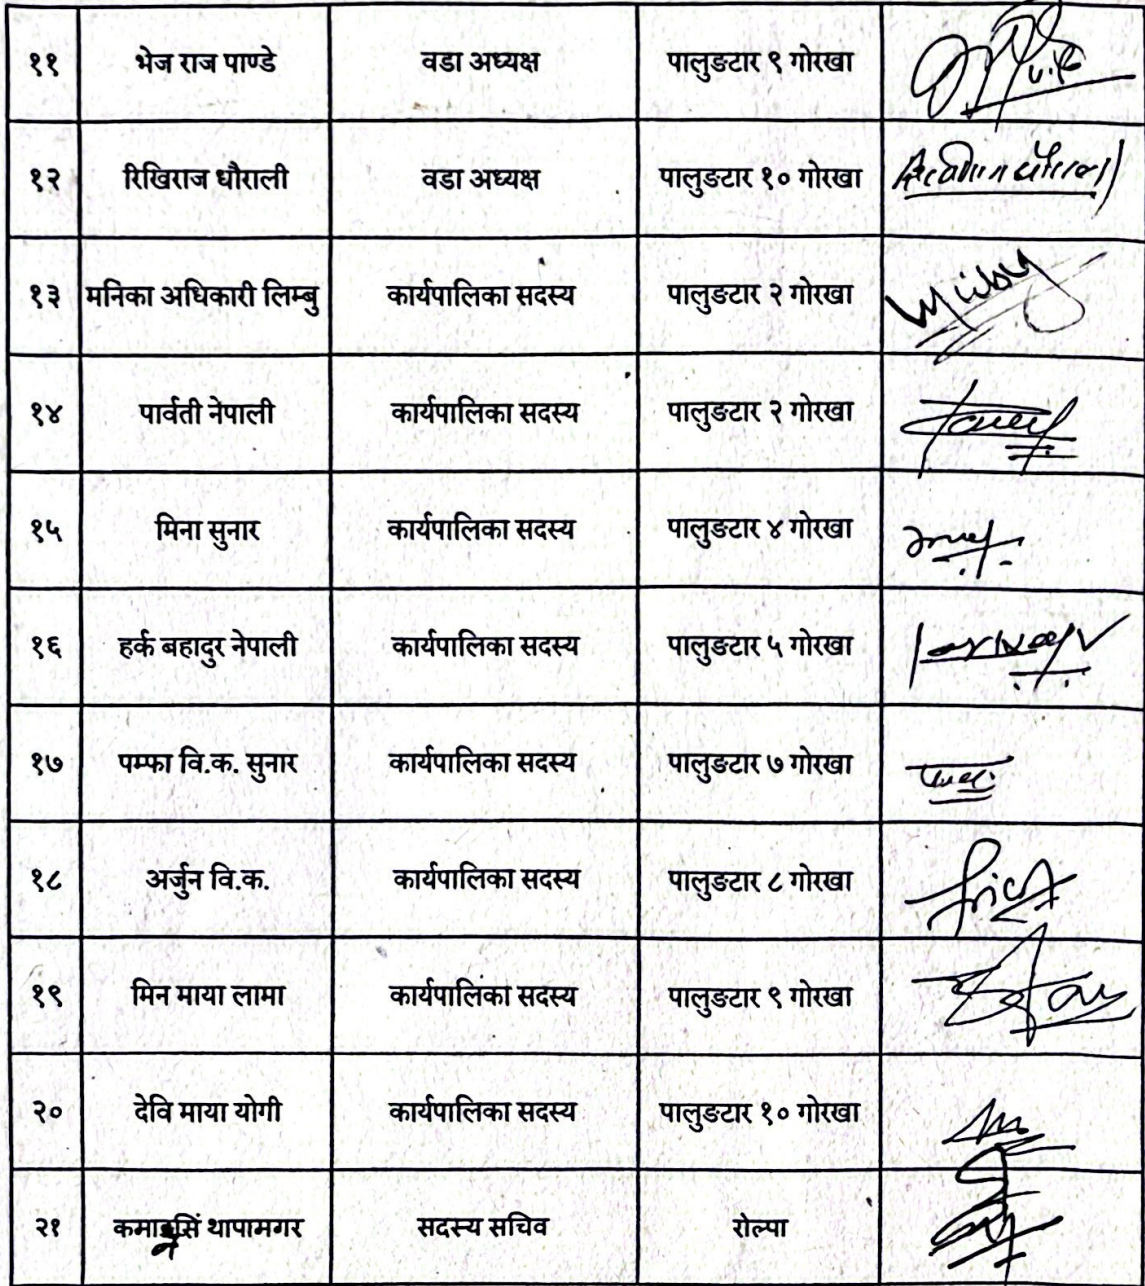 ११ भेज राज पाण्डे वडा अध्यक्ष पालुङटार ९ गोरखा
१२ रिखिराज धौराली वडा अध्यक्ष पालुङटार १० गोरखा
१३ मनिका अधिकारी लिम्बु कार्यपालिका सदस्य पालुङटार २ गोरखा
१४ पार्वती नेपाली कार्यपालिका सदस्य पालुङटार २ गोरखा
१५ मिना सुनार कार्यपालिका सदस्य पालुङटार ४ गोरखा
१६ हर्क बहादुर नेपाली कार्यपालिका सदस्य पालुङटार ५ गोरखा
१७ पम्फा वि.क. सुनार कार्यपालिका सदस्य पालुङटार ७ गोरखा
१८ अर्जुन वि.क. कार्यपालिका सदस्य पालुङटार ८ गोरखा
१९ मिन माया लामा कार्यपालिका सदस्य पालुङटार ९ गोरखा
२० देवि माया योगी कार्यपालिका सदस्य पालुङटार १० गोरखा
२१ थापामगर सदस्य सचिव रोल्पा